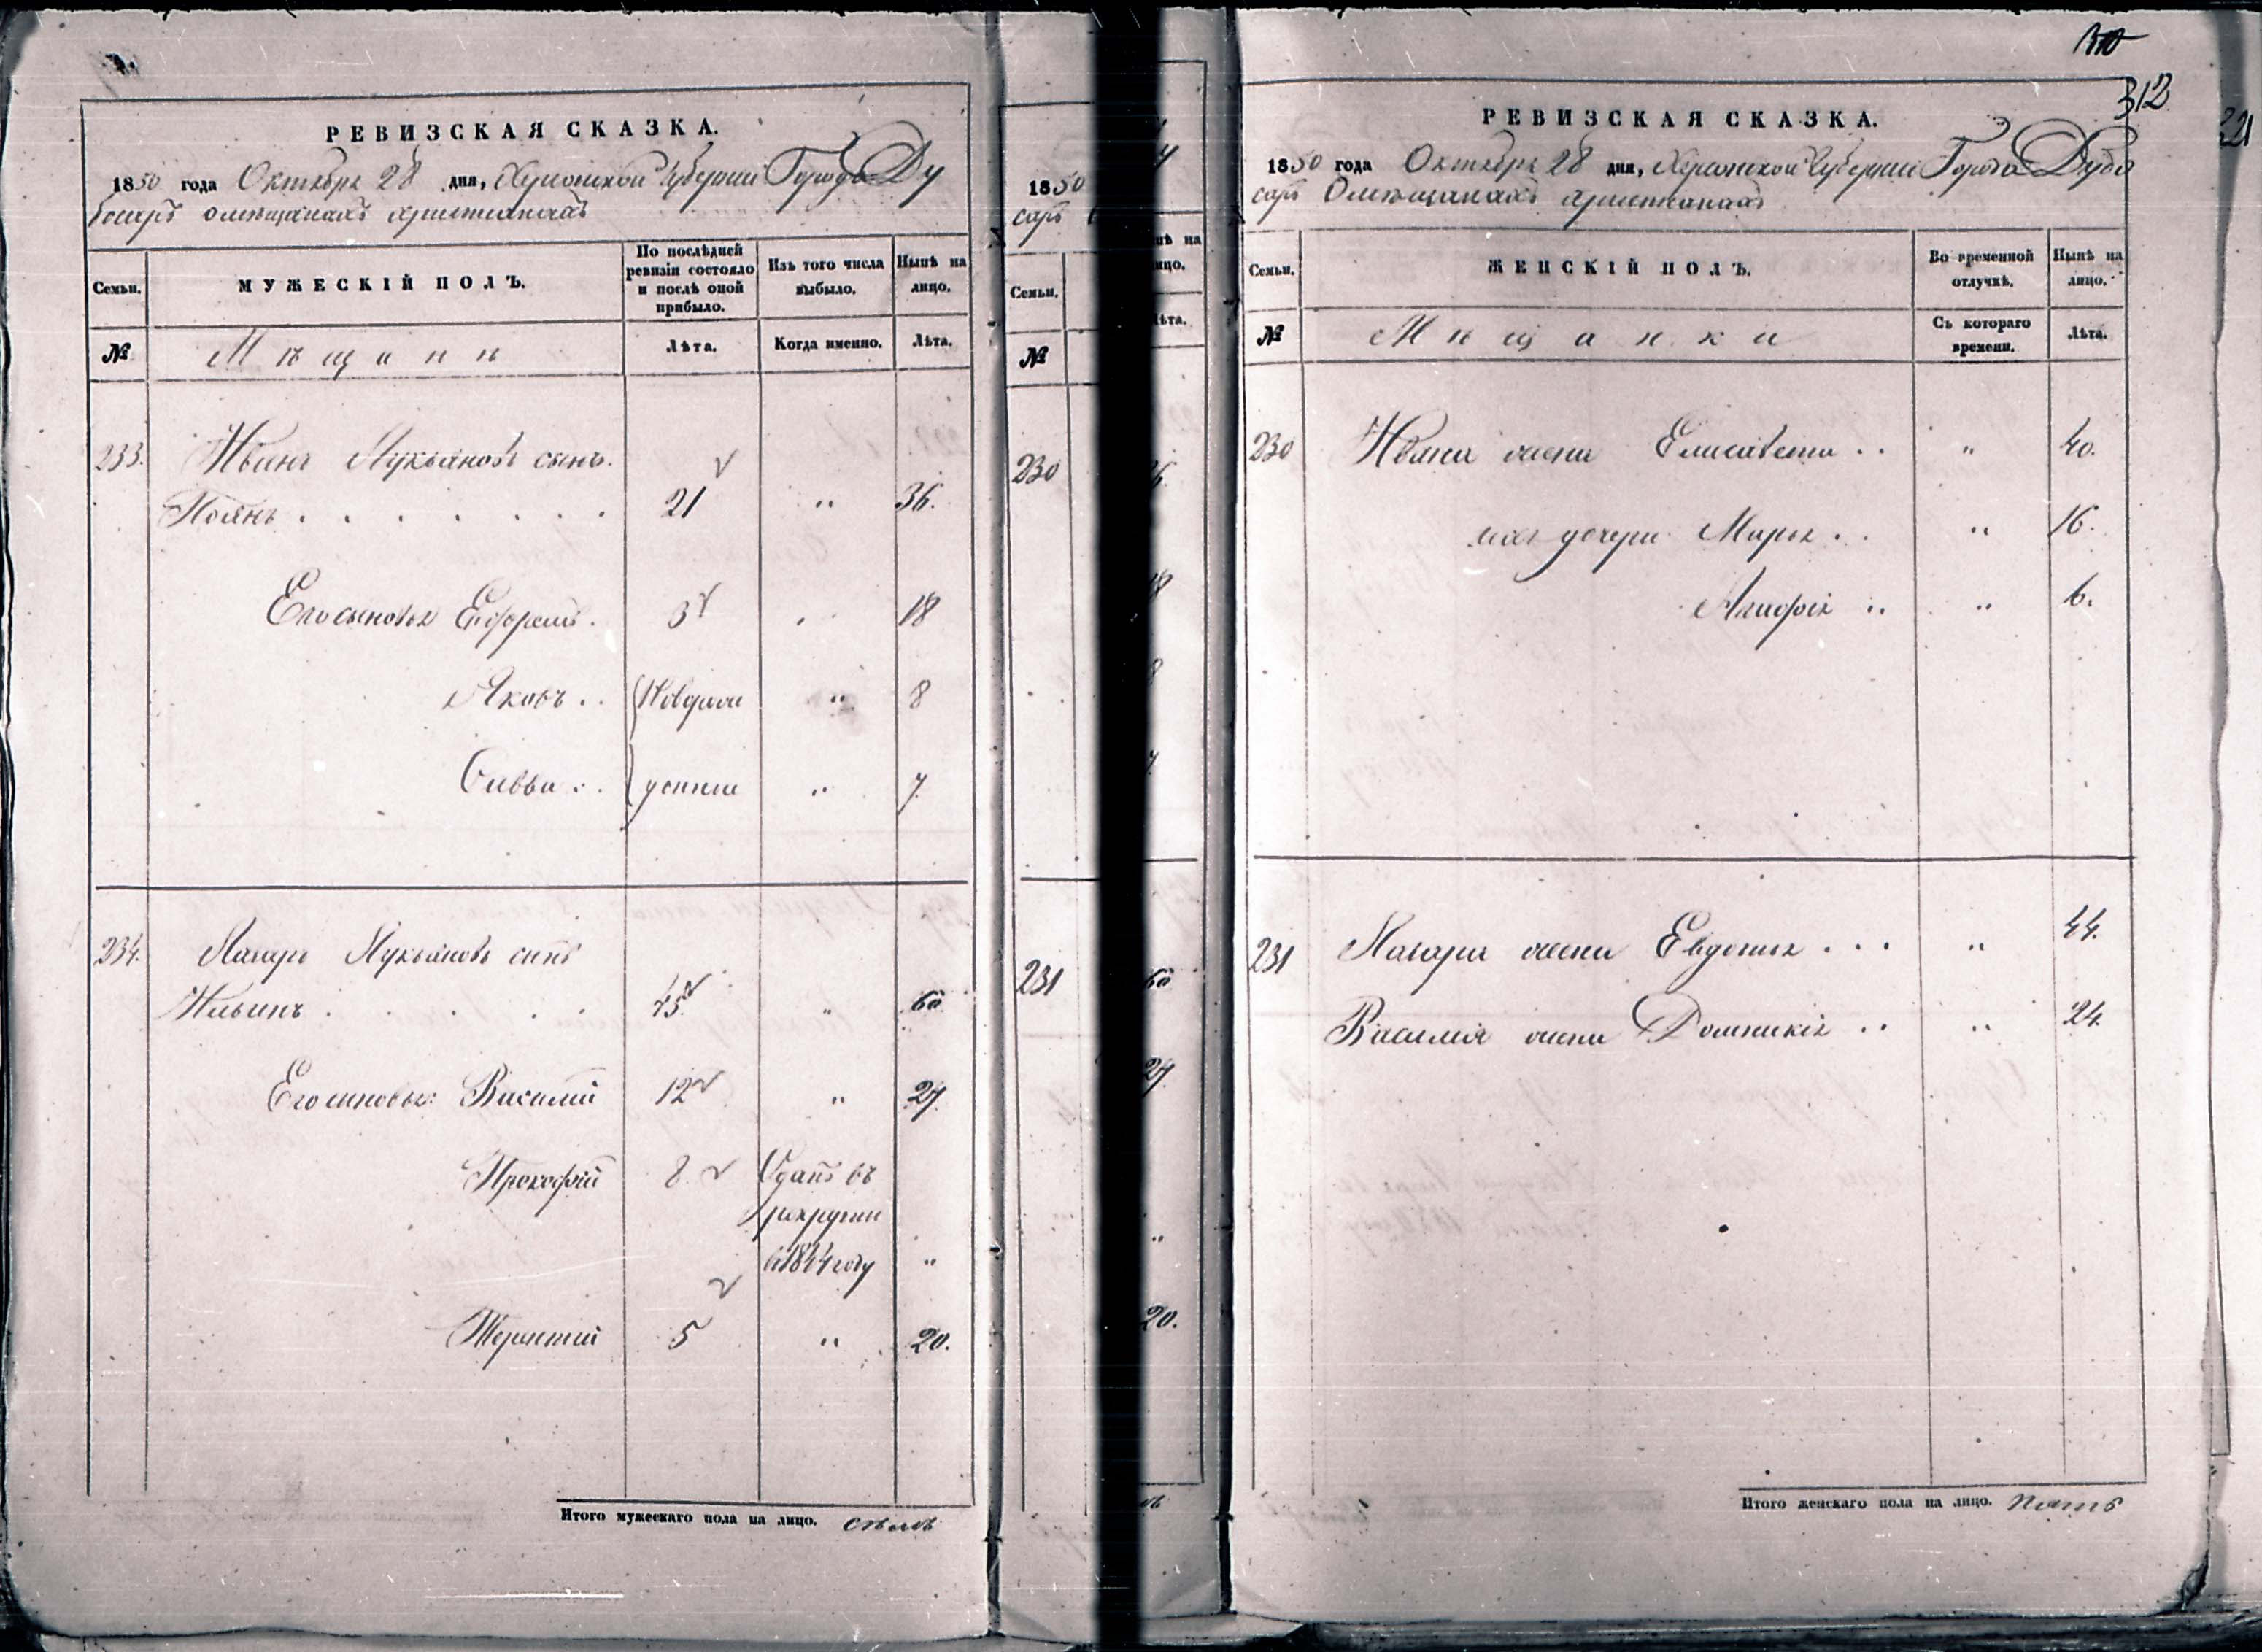 РЕВИЗСКАЯ СКАЗКА.
1850 года Октября 28 дня, Херсонской Губернии Города Ду
босаръ о мѣщанахъ христианахъ
Семьи.
МУЖЕСКІЙ ПОЛЪ.
По послѣдней ревизіи состояло и послѣ оной прибыло.
Изъ того числа выбыло.
Нынѣ на лицо.
№
Мѣщане
Лѣта.
Когда именно.
Лѣта.
233. Иванъ Лукьяновъ сынъ.
Поянъ . . . . . . . 21 " 36.
Его сыновья Ефремъ . 3 " 18
Яковъ . . Новоро " 8
Савва . . " 7
234. Лазарь Лукьяновъ сынъ
Ильинъ . . . . . 45 " 60
Его сыновья: Василий 12 " 27
Прокофий 8 Сданъ въ
рекруты
в 1844 году "
Терентий 5 " 20.
Итого мужескаго пола на лицо. семь
1850
саръ
Семьи.
№
230
231
на
лицо.
Лѣта.
60
27
"
20.
310
312
РЕВИЗСКАЯ СКАЗКА.
1850 года Октября 28 дня, Херсонской Губернии Города Дубо
саръ О мѣщанахъ христианахъ
Семьи.
ЖЕНСКІЙ ПОЛЪ.
Во временной отлучкѣ.
Нынѣ на лицо.
№
Мѣщанки
Съ котораго времени.
Лѣта.
230 Ивана жена Елисавета . . " 40.
дочери Марья . . " 16.
Агафия . . " 6.
231 Лазаря жена Евдокия . . . " 44.
Василия жена Домникия . . " 24.
Итого женскаго пола на лицо. пять